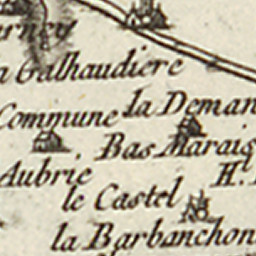 erney
a Galhaudiere
Commune la Deman
Bas Marais
Aubrie H.
le Castel
la Barbanchon